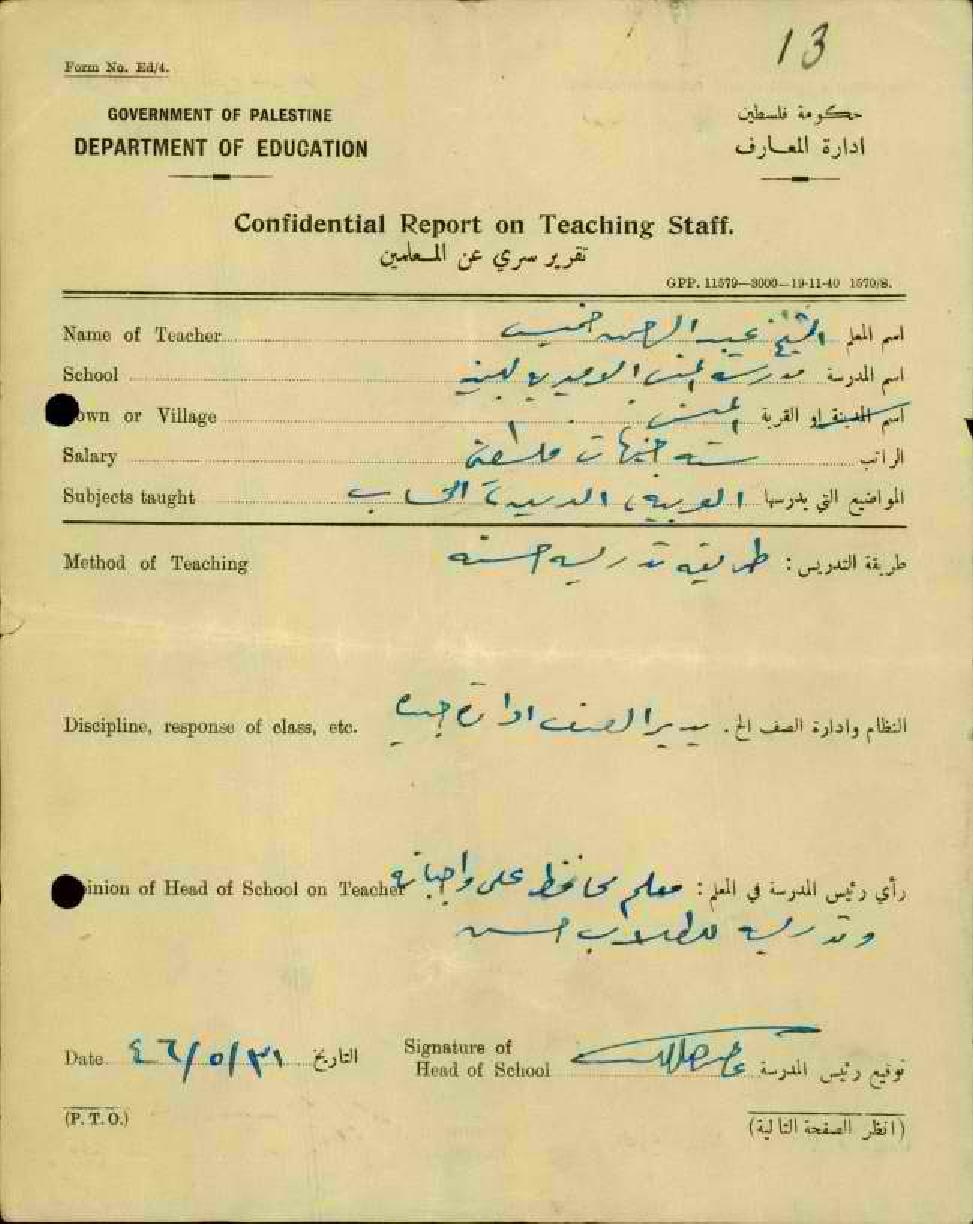 13
Form No. Ed/4.
GOVERNMENT OF PALESTINE
DEPARTMENT OF EDUCATION
حكومة فلسطين
ادارة المعارف
Confidential Report on Teaching Staff.
تقرير سري عن المعلمين
GPP. 11579—3000—19-11-40 1570/S.
Name of Teacher الشيخ عبد الرحمن خميس اسم المعلم
School مدرسة الاميرية للبنين اسم المدرسة
own or Village اسم المدينة او القرية
Salary ستة جنيهات فلسطينية الراتب
Subjects taught العربية، الدين، الحساب المواضيع التي يدرسها
Method of Teaching طريقة تدريسه حسنة طريقة التدريس :
Discipline, response of class, etc. يدير الصف ادارة جيدة النظام وادارة الصف الخ.
inion of Head of School on Teacher معلم محافظ على واجباته رأي رئيس المدرسة في المعلم :
وتدريسه للطلاب حسن
Date ٣١/٥/٤٦ التاريخ
Signature of
Head of School توقيع رئيس المدرسة
(P. T. O.)
(انظر الصفحة التالية)